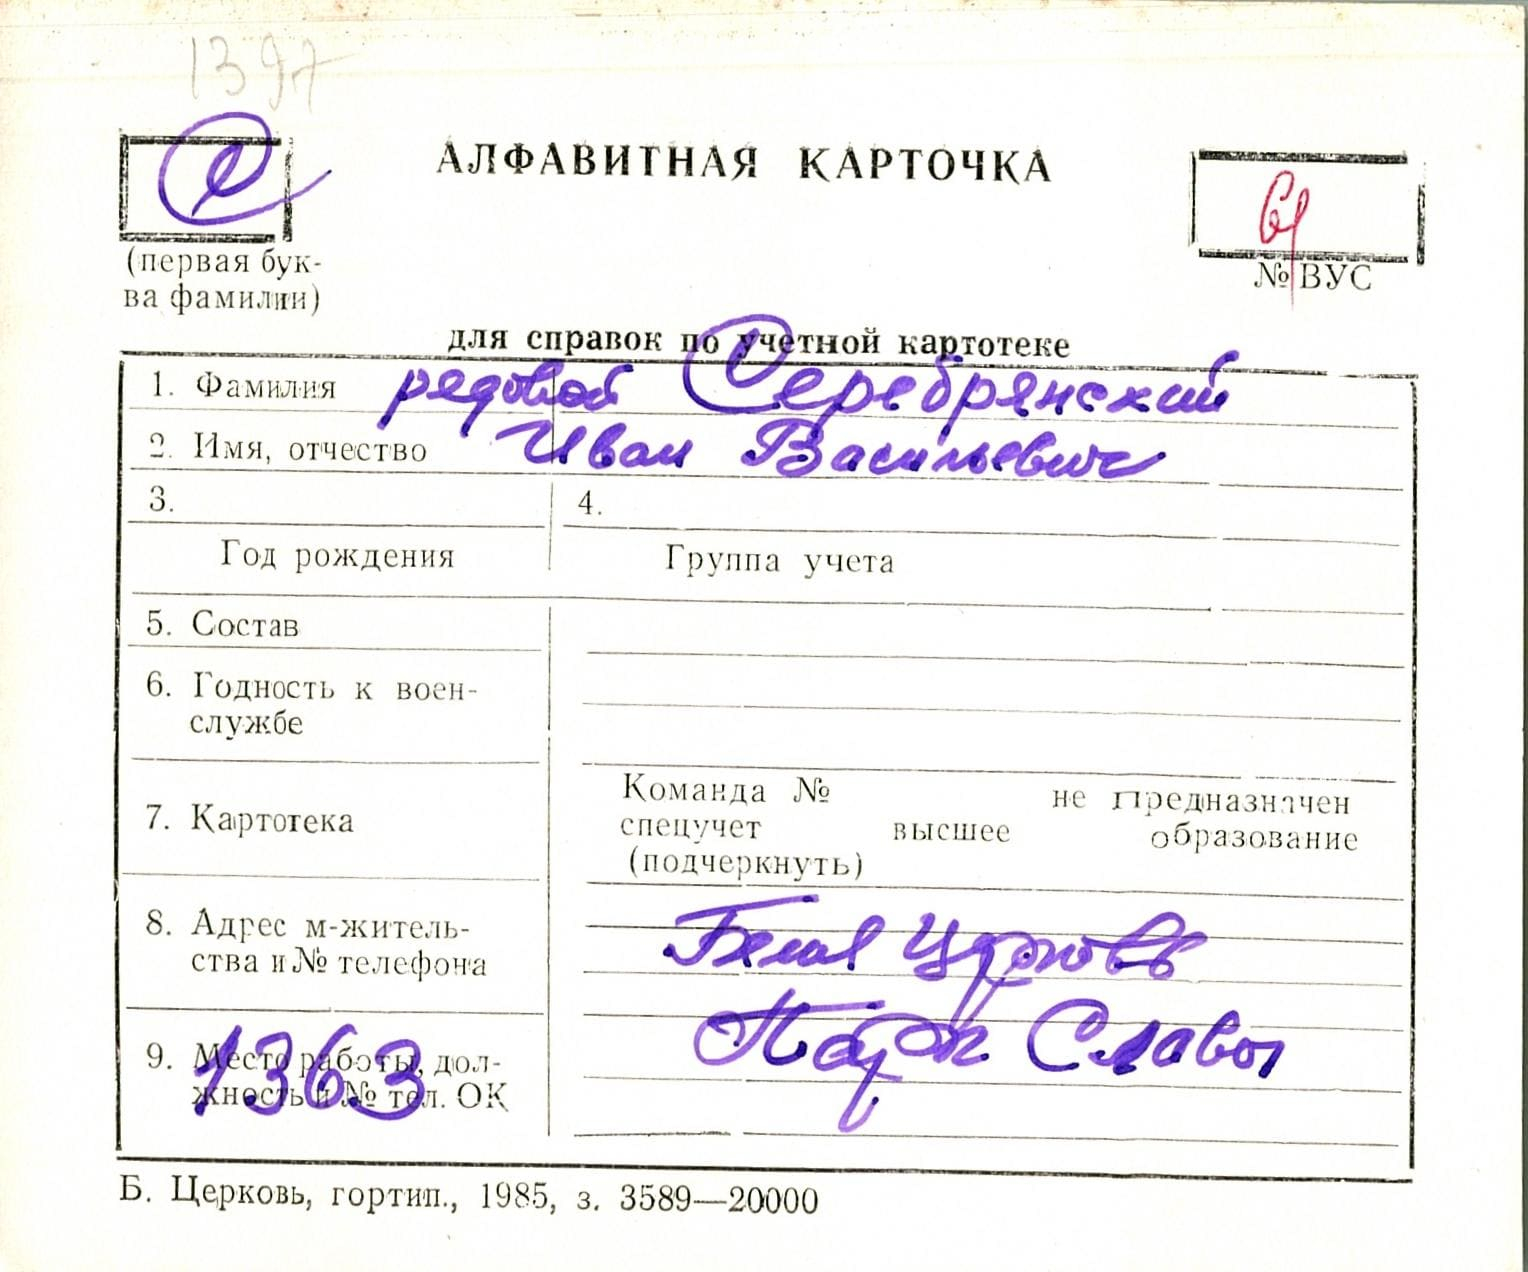 1397
С
АЛФАВИТНАЯ КАРТОЧКА
(первая бук-
ва фамилии)
№ ВУС
для справок по учетной картотеке
1. Фамилия редовой Серебрянский
2. Имя, отчество Иван Васильевич
3. 4.
Год рождения Группа учета
5. Состав
6. Годность к воен-
службе
7. Картотека
Команда № не предназначен
спецучет высшее образование
(подчеркнуть)
8. Адрес м-житель-
ства и № телефона
Белая Церковь
Парк Славы
9. Место работы, дол-
жность и № тел. ОК
1363
Б. Церковь, гортип., 1985, з. 3589—20000